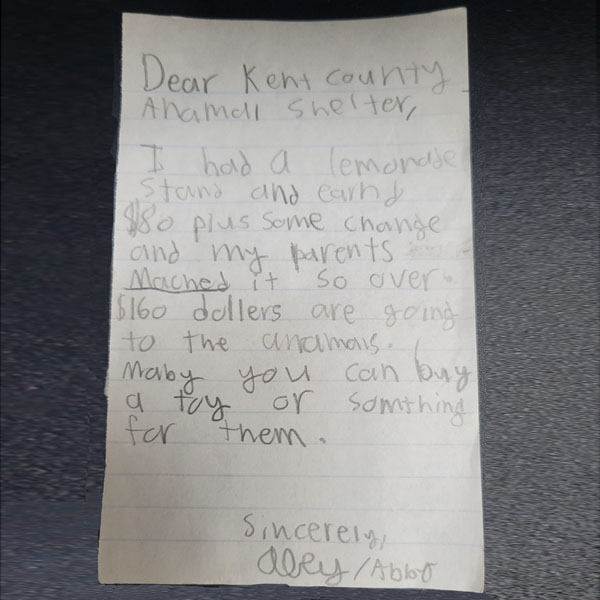 Dear Kent county
Anamall Shelter,
I had a lemonade
Stand and earnd
$80 plus some change
and my parents
Mached it so over
$160 dollers are going
to the anamals.
Maby you can buy
a toy or somthing
for them.
Sincerely,
/Abbo